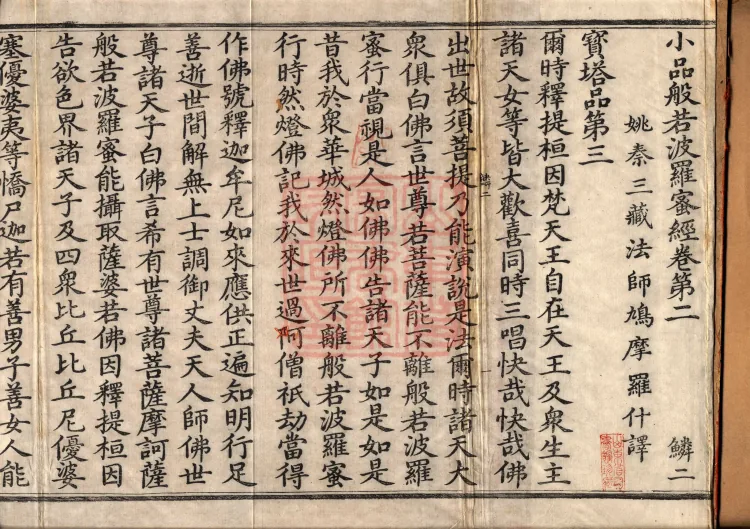 小品般若波羅蜜經卷第二 鱗二
姚秦三藏法師鳩摩羅什譯
寶塔品第三
爾時釋提桓因梵天王自在天王及衆生主
諸天女等皆大歡喜同時三唱快哉快哉佛
出世故須菩提乃能演說是法爾時諸天大
衆俱白佛言世尊若菩薩能不離般若波羅
蜜行當視是人如佛佛告諸天子如是如是
昔我於衆華城然燈佛所不離般若波羅蜜
行時然燈佛記我於來世過阿僧祇劫當得
作佛號釋迦牟尼如來應供正遍知明行足
善逝世間解無上士調御丈夫天人師佛世
尊諸天子白佛言希有世尊諸菩薩摩訶薩
般若波羅蜜能攝取薩婆若佛因釋提桓因
告欲色界諸天子及四衆比丘比丘尼優婆
塞優婆夷等憍尸迦若有善男子善女人能